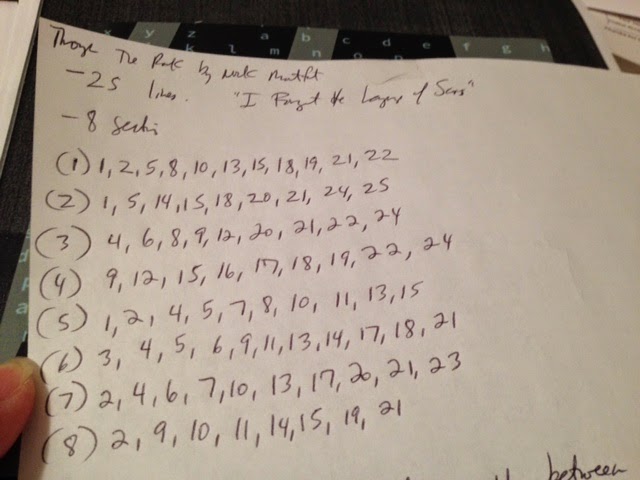 y z a b c d e f g h
k l m n o
Through The Park by Nick Montfort
- 25 lines. "I Forgot the Layer of Scars"
- 8 Sections
(1) 1, 2, 5, 8, 10, 13, 15, 18, 19, 21, 22
(2) 1, 5, 14, 15, 18, 20, 21, 24, 25
(3) 4, 6, 8, 9, 12, 20, 21, 22, 24
(4) 9, 12, 15, 16, 17, 18, 19, 22, 24
(5) 1, 2, 4, 5, 7, 8, 10, 11, 13, 15
(6) 3, 4, 5, 6, 9, 11, 13, 14, 17, 18, 21
(7) 2, 4, 6, 7, 10, 13, 17, 20, 21, 23
(8) 2, 9, 10, 11, 14, 15, 19, 21
between